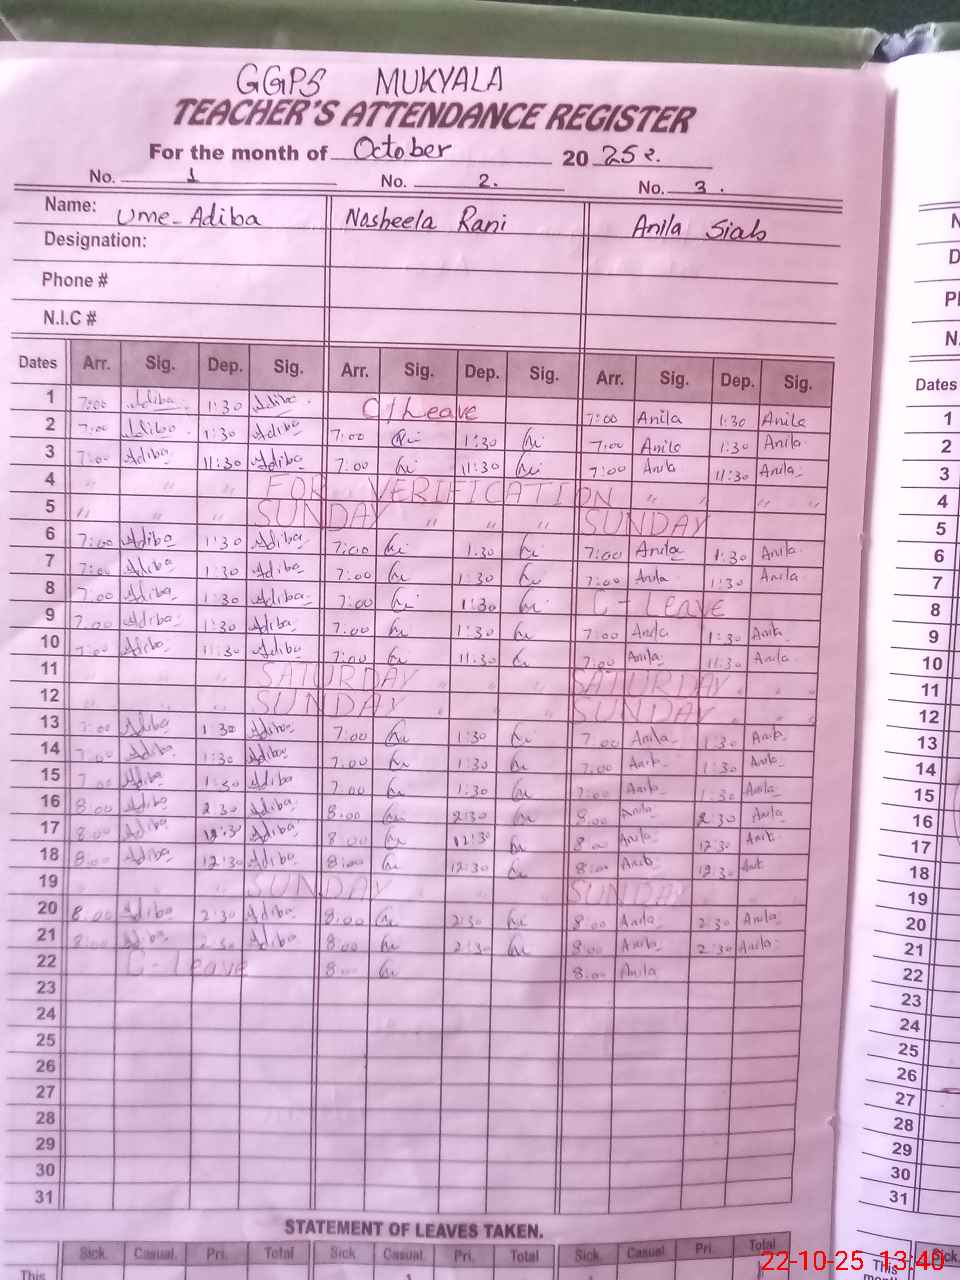 GGPS MUKYALA
TEACHER'S ATTENDANCE REGISTER
For the month of October 2025
No. 1 No. 2. No. 3.
Name: Ume-Adiba Nasheela Rani Anila Siab
Designation:
Phone #
N.I.C #
Dates Arr. Sig. Dep. Sig. Arr. Sig. Dep. Sig. Arr. Sig. Dep. Sig.
1 7:00 Adiba 1:30 Adiba C-Leave 7:00 Anila 1:30 Anila
2 7:00 Adiba 1:30 Adiba 7:00 1:30 7:00 Anila 1:30 Anila
3 7:00 Adiba 11:30 Adiba 7:00 11:30 7:00 Anila 11:30 Anila
4 " " " FOR VERIFICATION " " " "
5 " " " SUNDAY " " " SUNDAY
6 7:00 Adiba 1:30 Adiba 7:00 1:30 7:00 Anila 1:30 Anila
7 7:00 Adiba 1:30 Adiba 7:00 1:30 7:00 Anila 1:30 Anila
8 7:00 Adiba 1:30 Adiba 7:00 1:30 C-Leave
9 7:00 Adiba 1:30 Adiba 7:00 1:30 7:00 Anila 1:30 Anila
10 7:00 Adiba 11:30 Adiba 7:00 11:30 7:00 Anila 11:30 Anila
11 SATURDAY SATURDAY
12 SUNDAY SUNDAY
13 7:00 Adiba 1:30 Adiba 7:00 1:30 7:00 Anila 1:30 Anila
14 7:00 Adiba 1:30 Adiba 7:00 1:30 7:00 Anila 1:30 Anila
15 7:00 Adiba 1:30 Adiba 7:00 1:30 7:00 Anila 1:30 Anila
16 8:00 Adiba 2:30 Adiba 8:00 2:30 8:00 Anila 2:30 Anila
17 8:00 Adiba 12:30 Adiba 8:00 12:30 8:00 Anila 12:30 Anila
18 8:00 Adiba 12:30 Adiba 8:00 12:30 8:00 Anila 12:30 Anila
19 SUNDAY SUNDAY
20 8:00 Adiba 2:30 Adiba 8:00 2:30 8:00 Anila 2:30 Anila
21 8:00 Adiba 2:30 Adiba 8:00 2:30 8:00 Anila 2:30 Anila
22 C-Leave 8:00 8:00 Anila
23
24
25
26
27
28
29
30
31
STATEMENT OF LEAVES TAKEN.
Sick. Casual. Pri. Total Sick Casual. Pri. Total Sick. Casual Pri. Total
This
Dates
1
2
3
4
5
6
7
8
9
10
11
12
13
14
15
16
17
18
19
20
21
22
23
24
25
26
27
28
29
30
31
Sick.
This
22-10-25 13:40